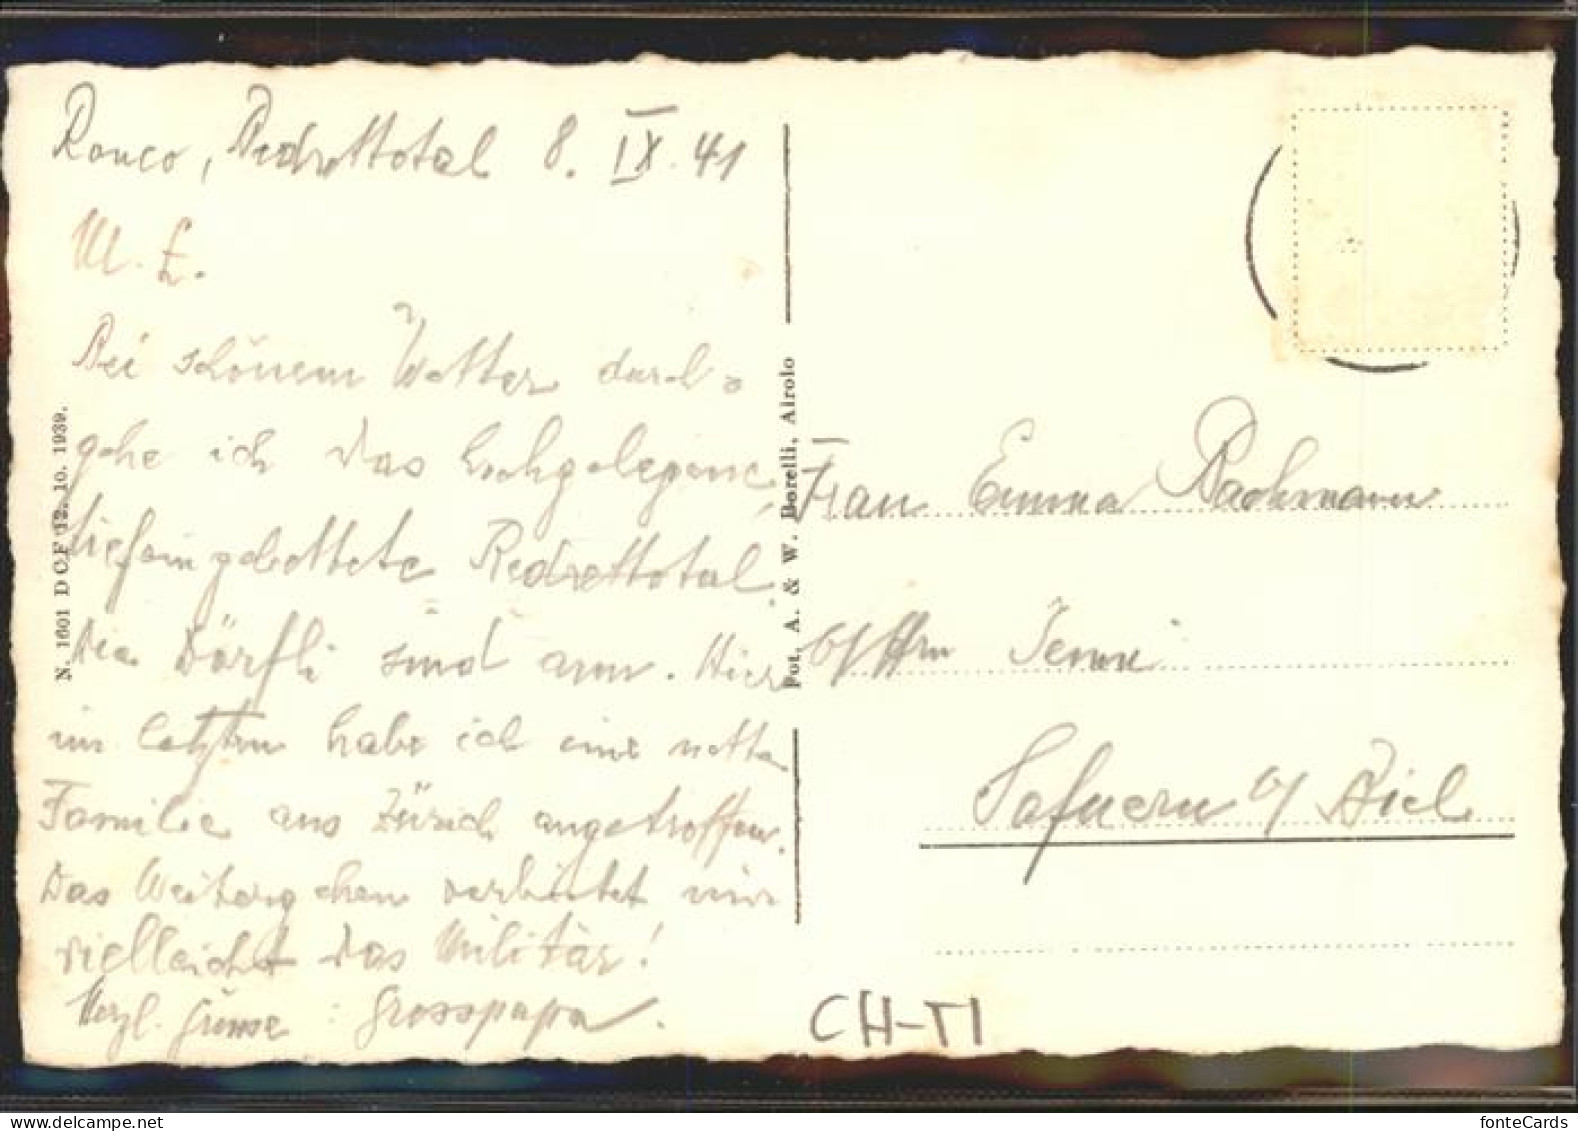 Ronco, Bedrettotal 8. IX. 41
M. L.
Bei schönem Wetter durch-
gehe ich das hochgelegene,
tiefeingebettete Bedrettotal.
Die Dörfli sind arm. Hier
im letzten habe ich eine nette
Familie aus Zürich angetroffen.
Das Weitergehen verbietet mir
vielleicht das Militär!
Herzl. Grüsse : Grosspapa.
N. 1601 DCF 12. 10. 1939.
Fot. A. & W. Borelli, Airolo
Frau Emma Bachmann
b/ Hrn Jenni
Safnern b/ Biel
CH-TI
fonteCards